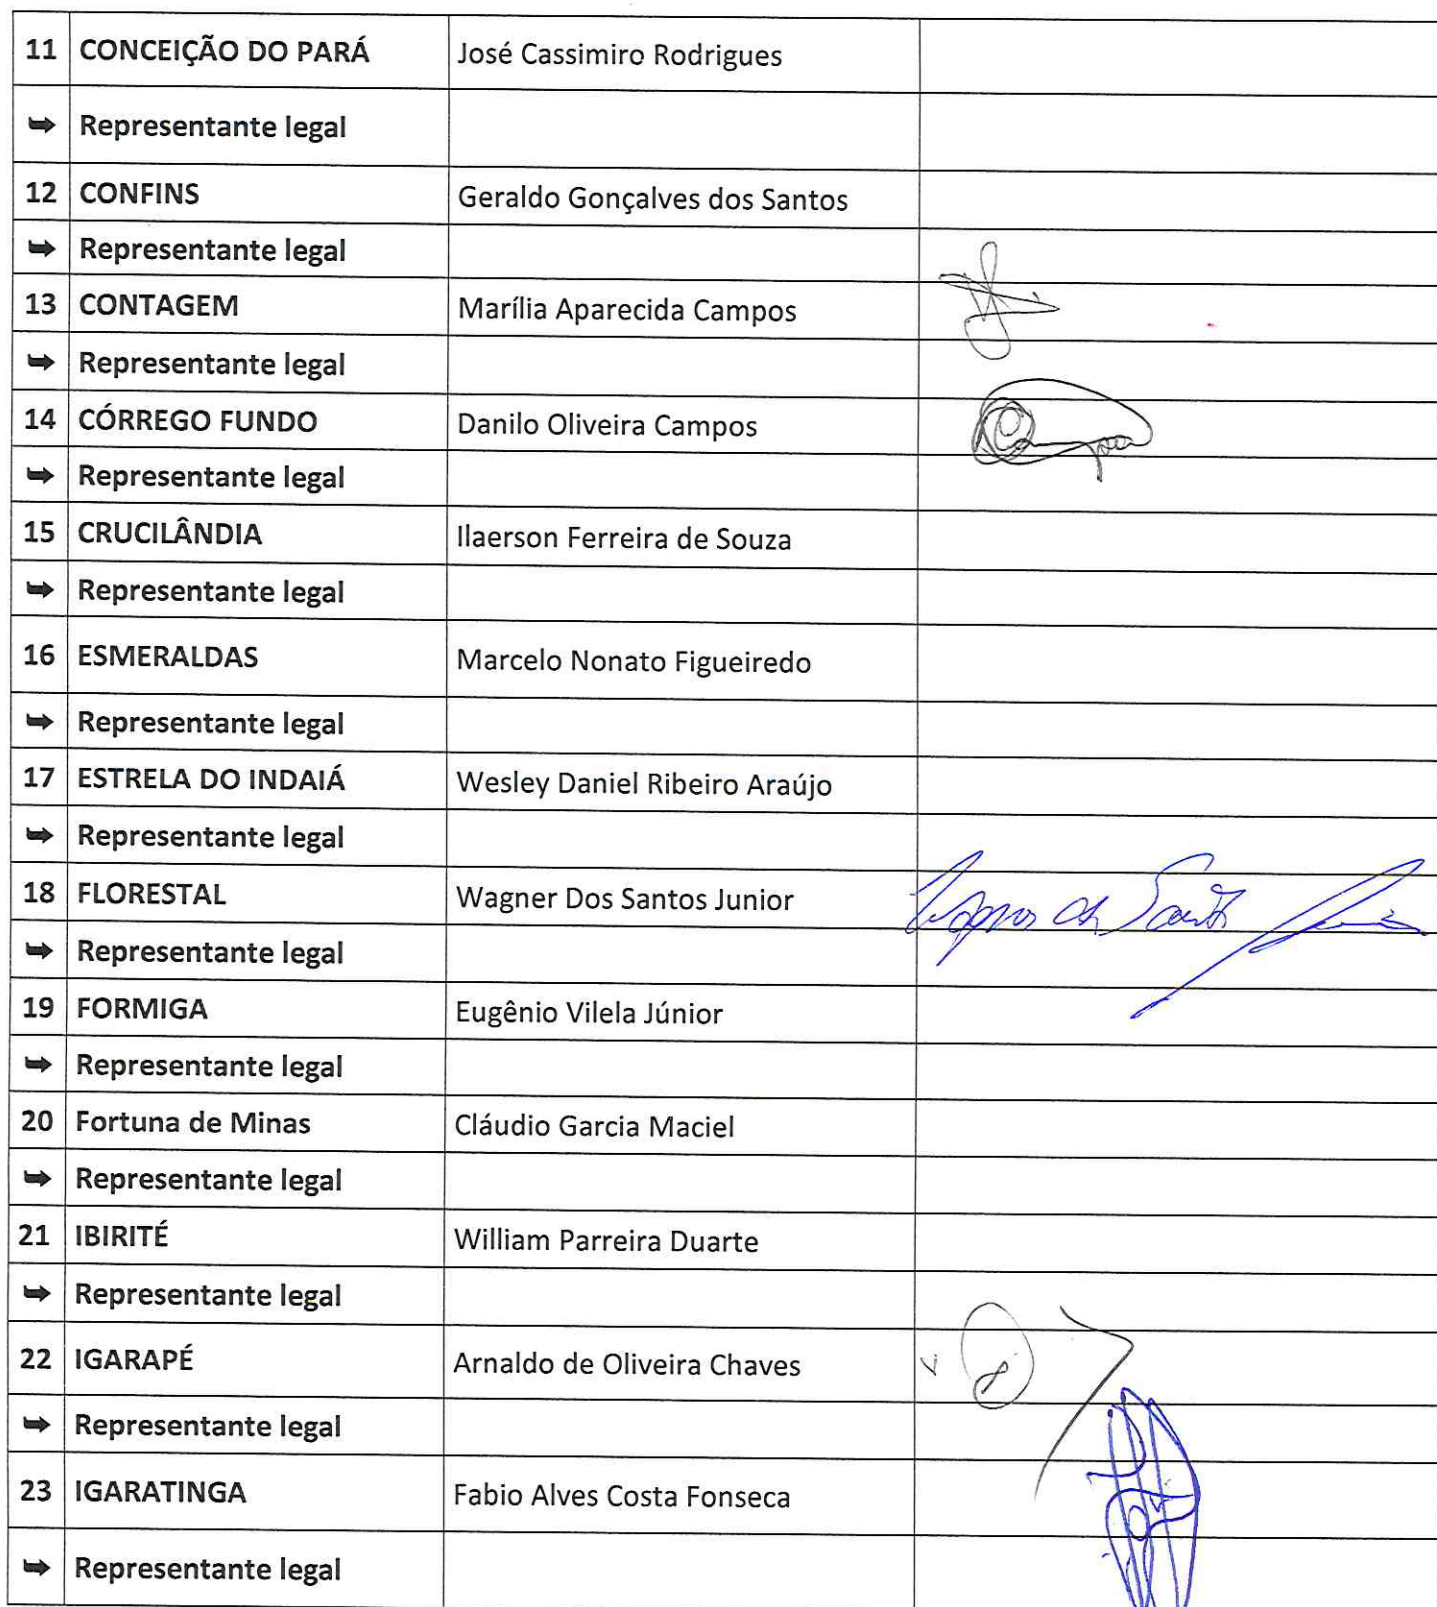 11 CONCEIÇÃO DO PARÁ José Cassimiro Rodrigues
➥ Representante legal
12 CONFINS Geraldo Gonçalves dos Santos
➥ Representante legal
13 CONTAGEM Marília Aparecida Campos
➥ Representante legal
14 CÓRREGO FUNDO Danilo Oliveira Campos
➥ Representante legal
15 CRUCILÂNDIA Ilaerson Ferreira de Souza
➥ Representante legal
16 ESMERALDAS Marcelo Nonato Figueiredo
➥ Representante legal
17 ESTRELA DO INDAIÁ Wesley Daniel Ribeiro Araújo
➥ Representante legal
18 FLORESTAL Wagner Dos Santos Junior
➥ Representante legal
19 FORMIGA Eugênio Vilela Júnior
➥ Representante legal
20 Fortuna de Minas Cláudio Garcia Maciel
➥ Representante legal
21 IBIRITÉ William Parreira Duarte
➥ Representante legal
22 IGARAPÉ Arnaldo de Oliveira Chaves
➥ Representante legal
23 IGARATINGA Fabio Alves Costa Fonseca
➥ Representante legal